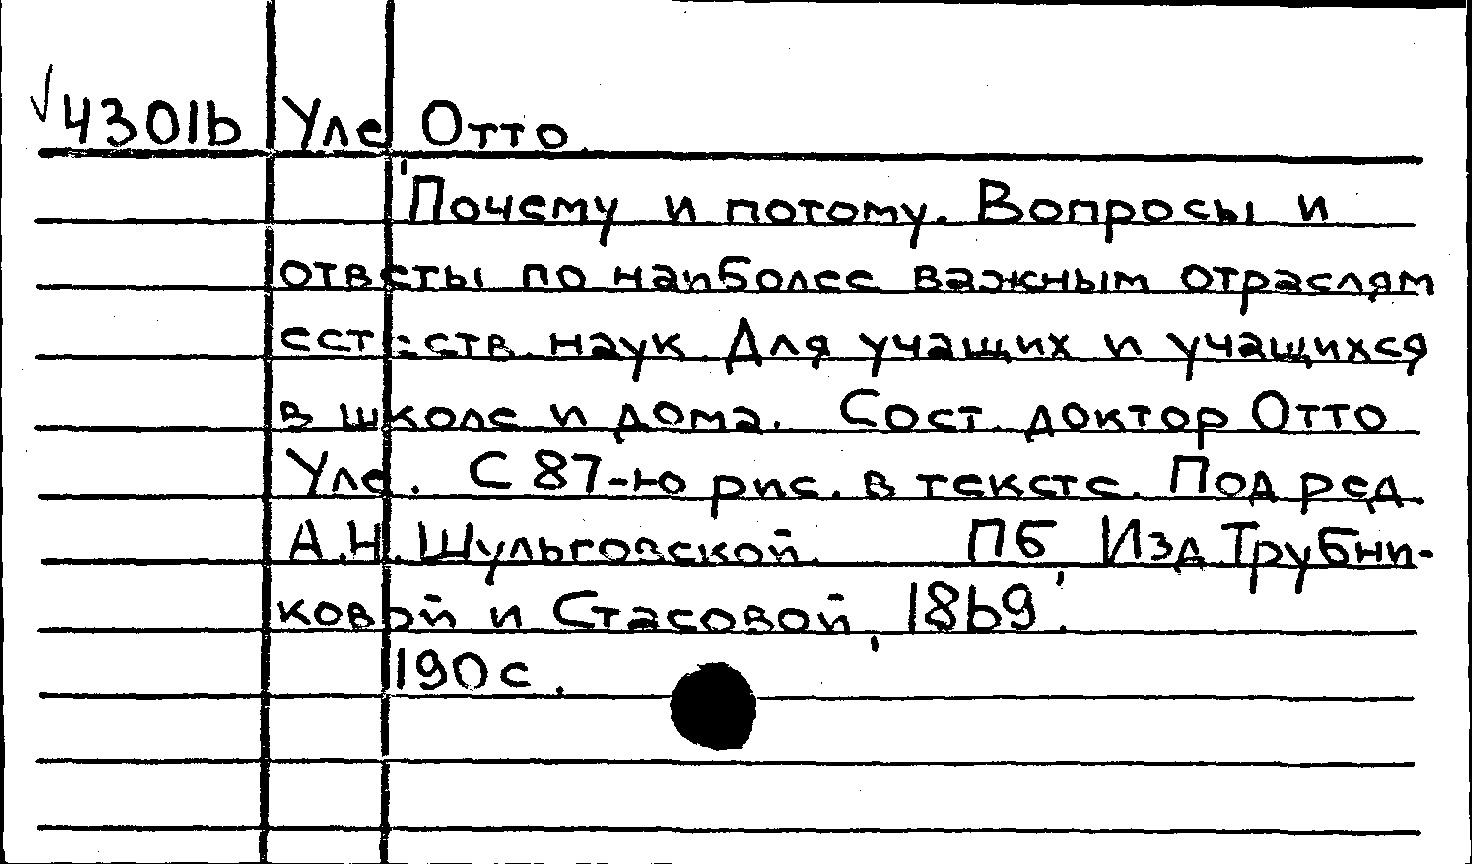 43016 Уле Отто.
Почему и потому. Вопросы и
ответы по наиболее важным отраслям
естеств. наук. Для учащих и учащихся
в школе и дома. Сост. доктор Отто
Уле. С 87-ю рис. в тексте. Под ред.
А.Н. Шульговской. Пб, Изд. Трубни-
ковой и Стасовой, 1869.
190 с.